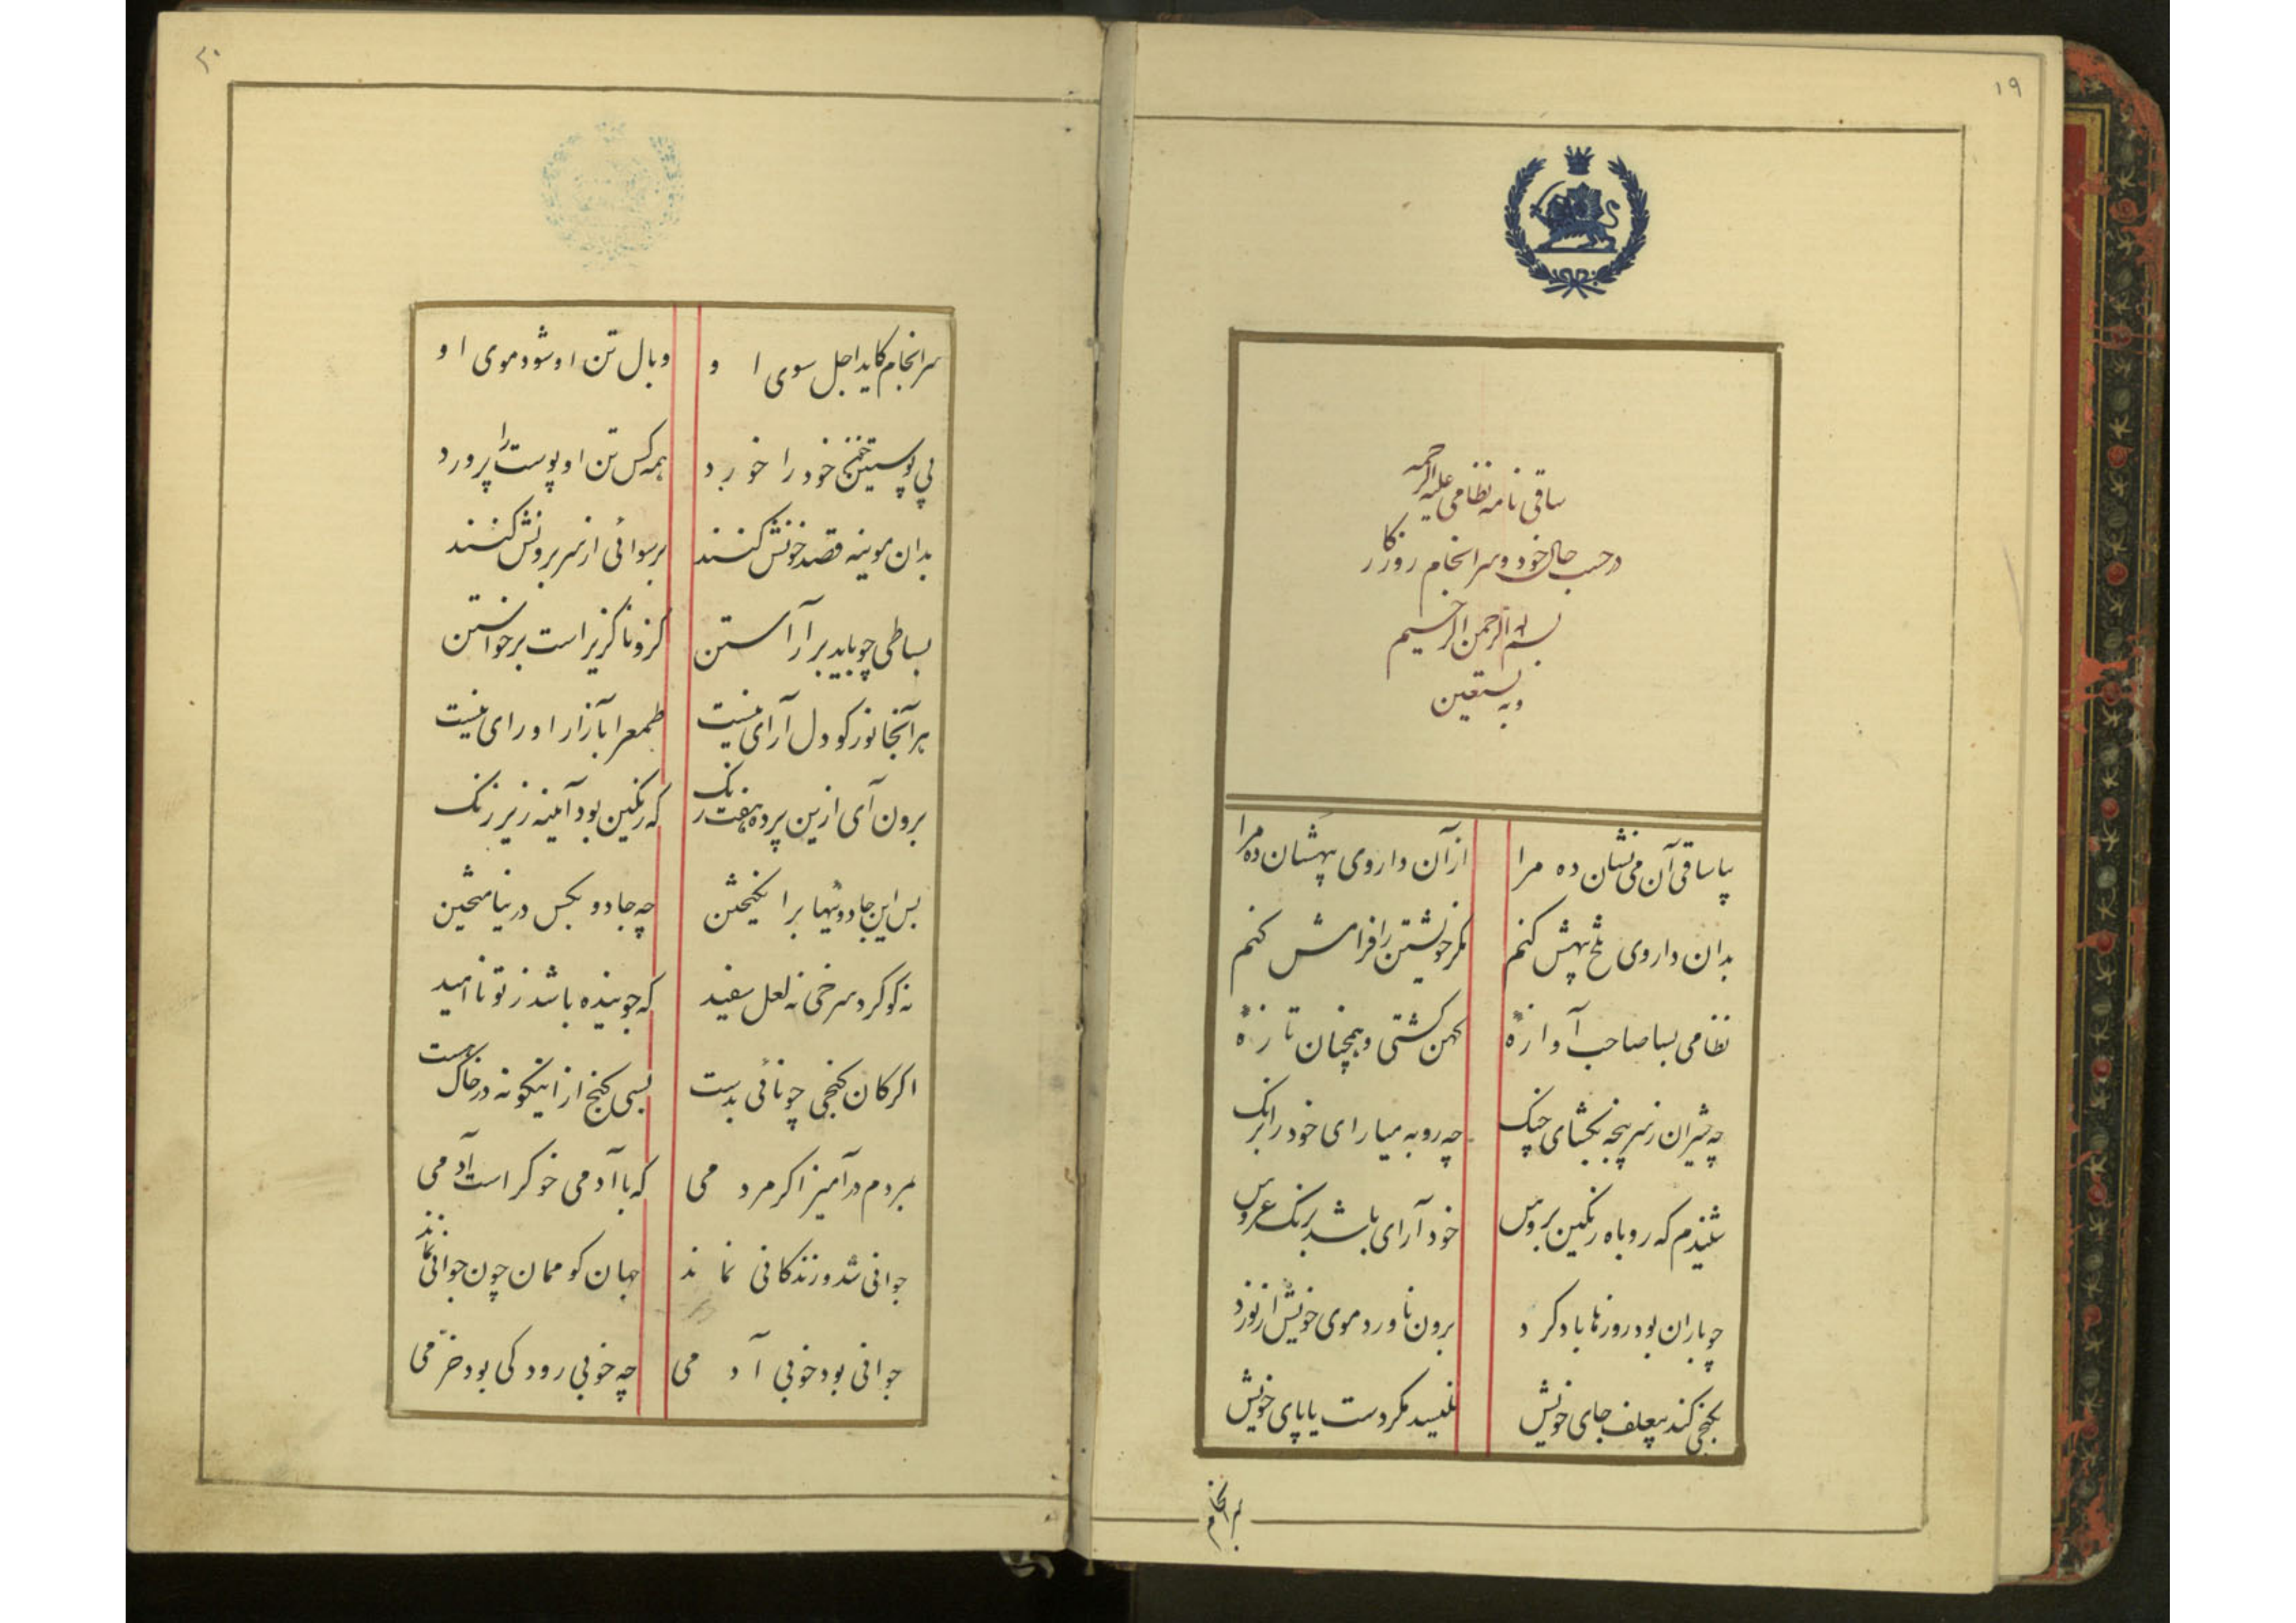 ۱۹
ساقی نامه نظامی علیه الرحمه
در حسب حال خود و سرانجام روزکار
بسم الله الرحمن الرحیم
وبه نستعین
بیا ساقی آن می نشان ده مرا از آن داروی بیهشان ده مرا
بدان داروی تلخ بیهش کنم مکر خویشتن را فرامش کنم
نظامی بسا صاحب آوازهٔ کهن کشتی و همچنان تازهٔ
چه شیران ز سرپنجه بکشای چنک چه روبه میارای خود را برنک
شنیدم که روباه رنکین بروس خود آرای باشد برنک عروس
چو باران بود روزها باد کرد برون ناورد موی خویش از نورد
بکنجی کند بیعلف جای خویش نلیسد مکر دست یا پای خویش
سرانجام
۲۰
سرانجام کاید اجل سوی او وبال تن او شود موی او
پی پوستین خون خود را خورد همه کس تن او پوست را پرورد
بدان موینه قصد خونش کنند برسوائی از سر برونش کنند
بساطی چو باید بر آراستن کزو ناکزیر است برخواستن
هر آنجانور کو دل آرای نیست طمعرا بآزار او رای نیست
برون آی ازین پرده هفت رنک که رنکین بود آینه زیر زنک
بس این جادوئیها برانکیختن چه جادو بکس در نیامیختن
نه کوکرد سرخی نه لعل سفید که جوینده باشد ز تو ناامید
اکر کان کنجی چو نائی بدست بسی کنج از اینکونه در خاک هست
بمردم درآمیز اکر مردمی که با آدمی خوکر است آدمی
جوانی شد و زندکانی نماند جهان کو ممان چون جوانی نماند
جوانی بود خوبی آدمی چه خوبی رود کی بود خرّمی